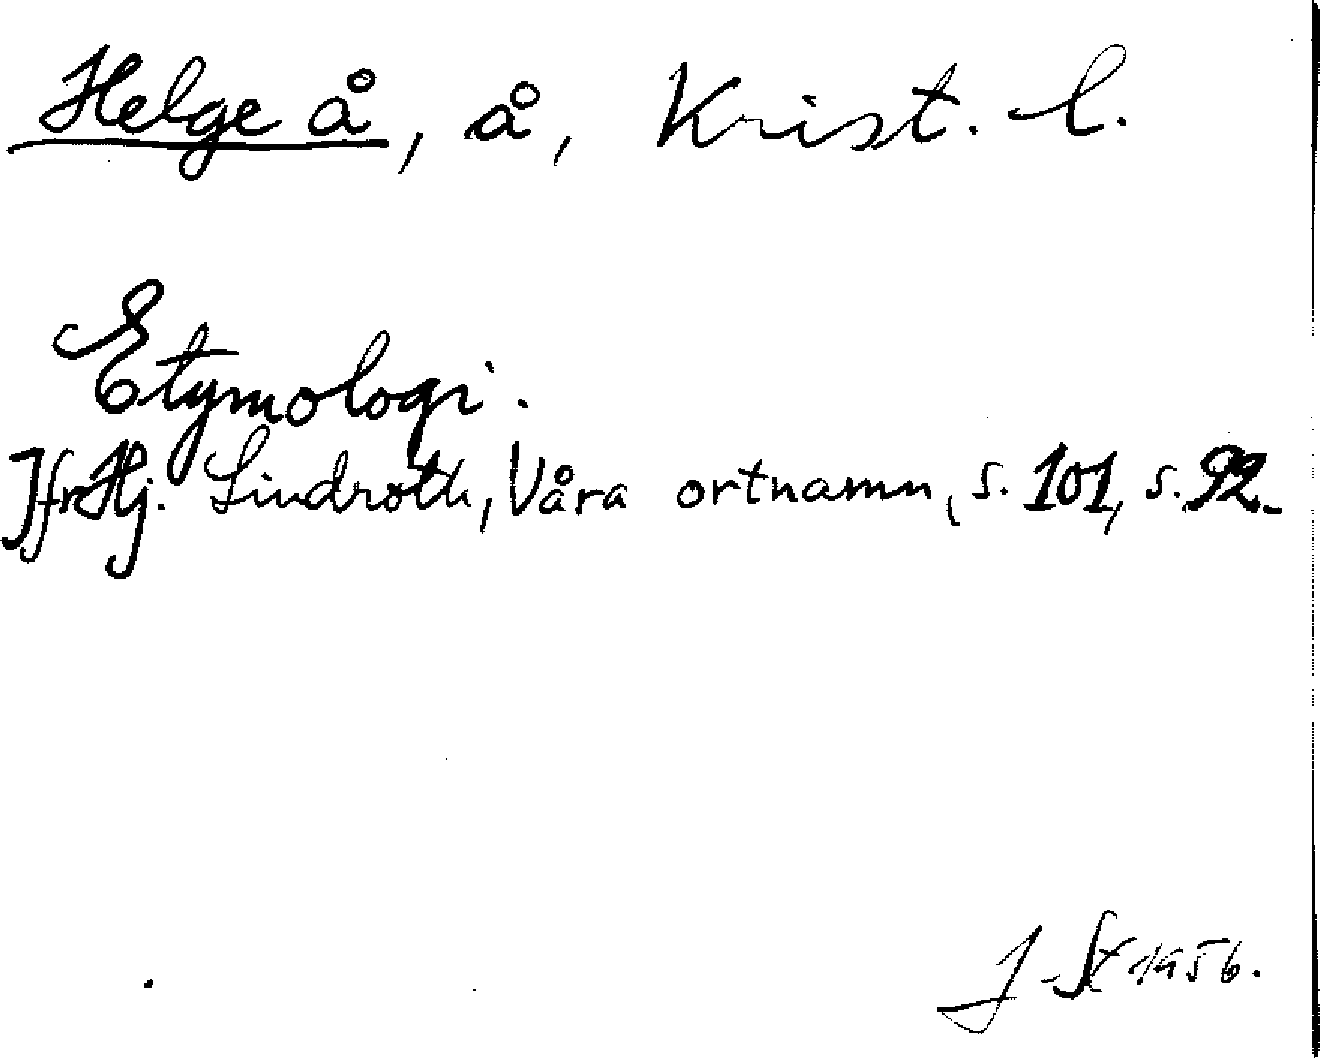 Helge å, å, Krist. l.
Etymologi.
Jfr Hj. Lindroth, Våra ortnamn, s. 101, s. 92.
J St 1956.